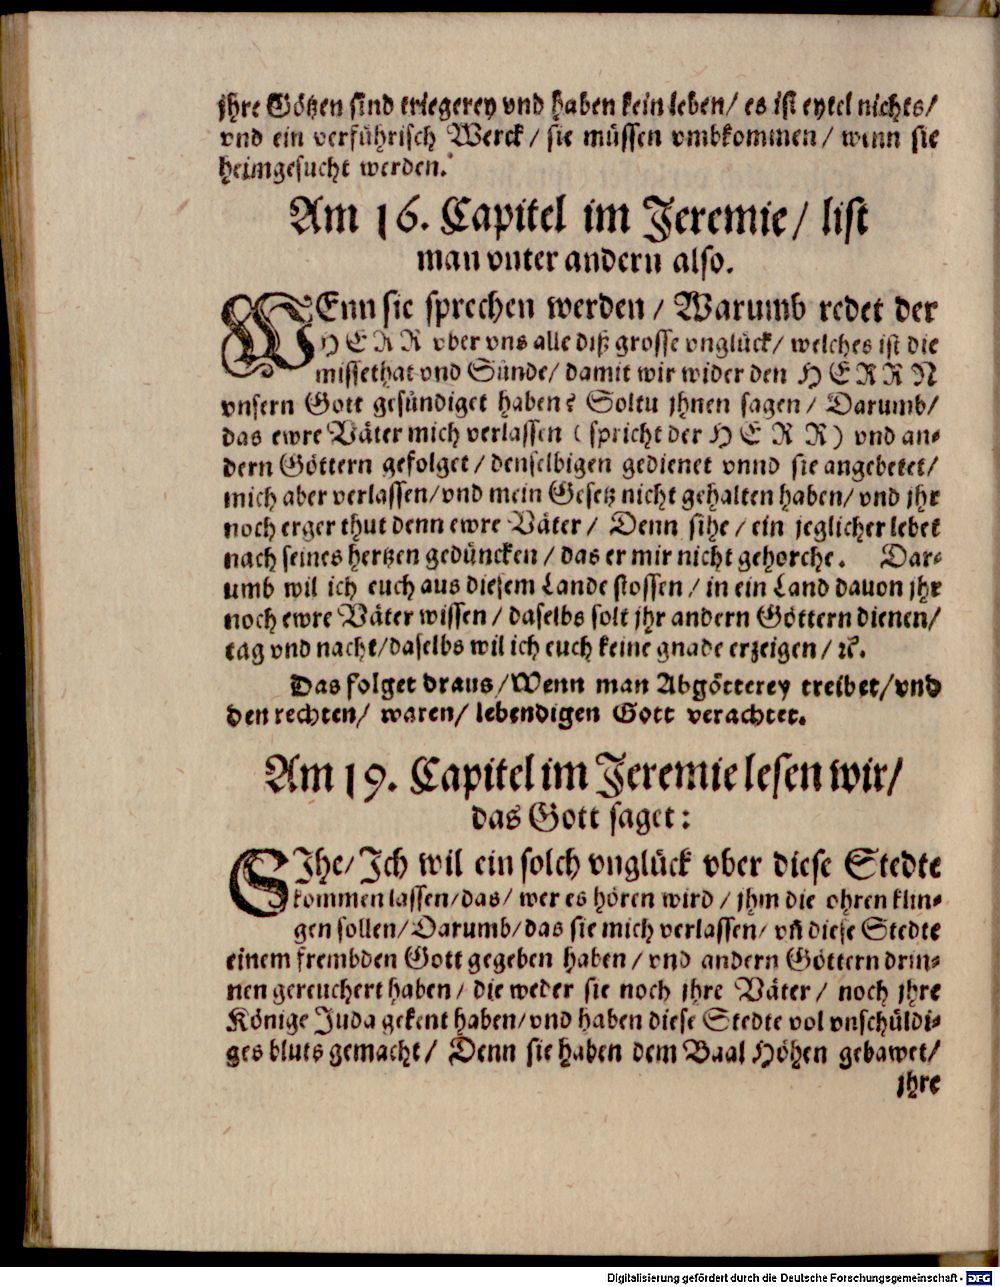 jhre Götzen sind triegerey vnd haben kein leben/ es ist eytel nichts/
vnd ein verführisch Werck/ sie müssen vmbkommen/ wenn sie
heimgesucht werden.
Am 16. Capitel im Jeremie/ list
man vnter andern also.
WEnn sie sprechen werden/ Warumb redet der
HERR vber vns alle diß grosse vnglück/ welches ist die
missethat vnd Sünde/ damit wir wider den HERRN
vnsern Gott gesündiget haben? Soltu jhnen sagen/ Darumb/
das ewre Väter mich verlassen (spricht der HERR) vnd an-
dern Göttern gefolget/ denselbigen gedienet vnnd sie angebetet/
mich aber verlassen/ vnd mein Gesetz nicht gehalten haben/ vnd jhr
noch erger thut denn ewre Väter/ Denn sihe/ ein jeglicher lebet
nach seines hertzen gedüncken/ das er mir nicht gehorche. Dar-
umb wil ich euch aus diesem Lande stossen/ in ein Land dauon jhr
noch ewre Väter wissen/ daselbs solt jhr andern Göttern dienen/
tag vnd nacht/ daselbs wil ich euch keine gnade erzeigen/ ꝛc.
Das folget draus/ Wenn man Abgötterey treibet/ vnd
den rechten/ waren/ lebendigen Gott verachtet.
Am 19. Capitel im Jeremie lesen wir/
das Gott saget:
SIhe/ Ich wil ein solch vnglück vber diese Stedte
kommen lassen/ das/ wer es hören wird/ jhm die ohren klin-
gen sollen/ Darumb/ das sie mich verlassen/ vñ diese Stedte
einem frembden Gott gegeben haben/ vnd andern Göttern drin-
nen gereuchert haben/ die weder sie noch jhre Väter/ noch jhre
Könige Juda gekent haben/ vnd haben diese Stedte vol vnschüldi-
ges bluts gemacht/ Denn sie haben dem Baal Höhen gebawet/
jhre
Digitalisierung gefördert durch die Deutsche Forschungsgemeinschaft - DFG